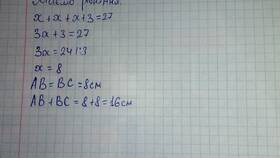 Маємо рівняння:
x + x + x + 3 = 27
3x + 3 = 27
3x = 24 1:3
x = 8
AB = BC = 8см
AB + BC = 8 + 8 = 16см